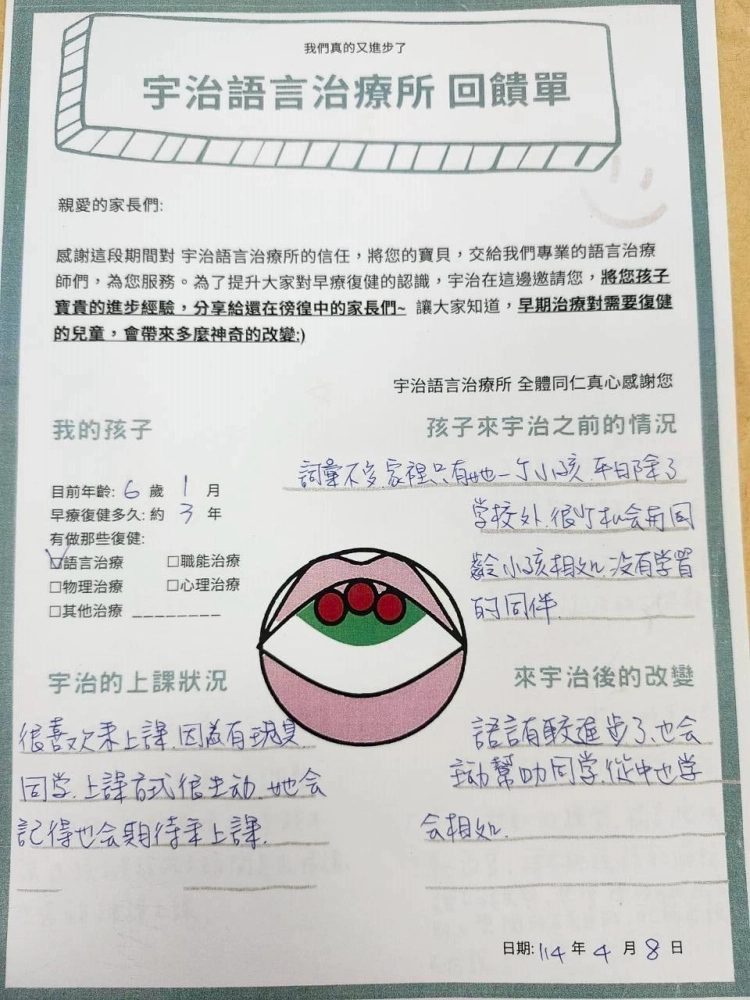 我們真的又進步了
宇治語言治療所 回饋單
親愛的家長們:
感謝這段期間對 宇治語言治療所的信任，將您的寶貝，交給我們專業的語言治療
師們，為您服務。為了提升大家對早療復健的認識，宇治在這邊邀請您，將您孩子
寶貴的進步經驗，分享給還在徬徨中的家長們~ 讓大家知道，早期治療對需要復健
的兒童，會帶來多麼神奇的改變:)
宇治語言治療所 全體同仁真心感謝您
我的孩子
目前年齡: 6 歲 1 月
早療復健多久: 約 3 年
有做那些復健:
☑語言治療 □職能治療
□物理治療 □心理治療
□其他治療 ________
孩子來宇治之前的情況
詞彙不多.家裡只有她一个小孩.平日除了
学校外.很少机会有同
齡小孩相処.没有学習
的同伴.
宇治的上課狀況
很喜欢來上課.因為有
同学.上課方式很生动.她会
記得也会期待來上課.
來宇治後的改變
語言有較進步了.也会
主动幫助同学.從中也学
会相処.
日期: 114 年 4 月 8 日